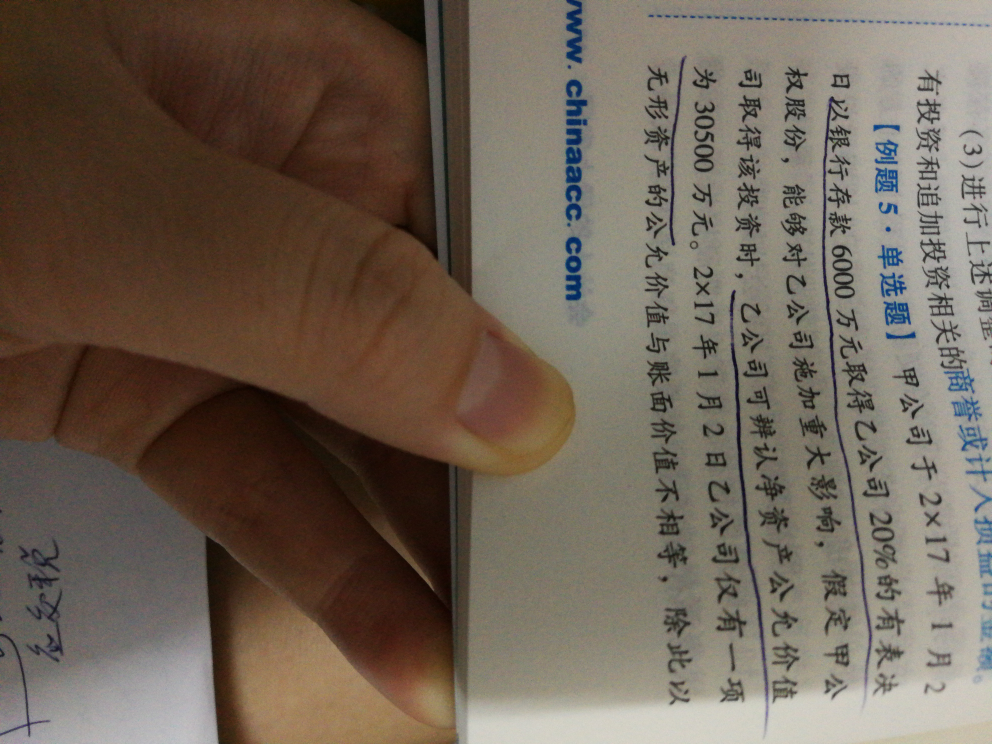 (3)进行上述调整
有投资和追加投资相关的商誉或计入损益的金额。
【例题5·单选题】 甲公司于2×17年1月2
日以银行存款6000万元取得乙公司20%的有表决
权股份，能够对乙公司施加重大影响，假定甲公
司取得该投资时，乙公司可辨认净资产公允价值
为30500万元。2×17年1月2日乙公司仅有一项
无形资产的公允价值与账面价值不相等，除此以
www.chinaacc.com